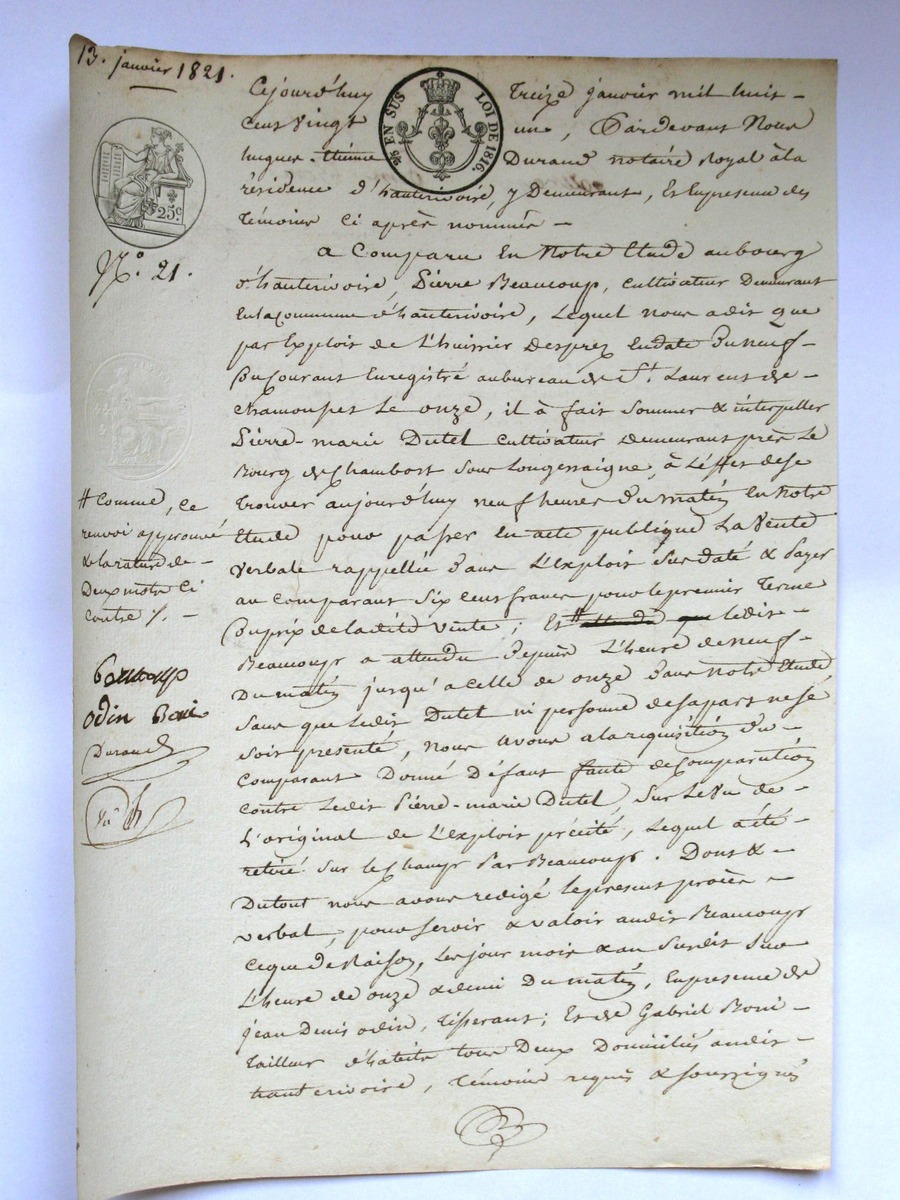 13. janvier 1821.
Cejourd'huy Treize janvier mil huit -
cent vingt un, Pardevant Nous
hugues-étienne Durand notaire Royal à la
résidence d'hauterivoire, y Demeurant, Et En presence des
Témoins Ci après nommés -
a Comparu En Notre Etude au bourg
d'hauterivoire, Pierre Beaucoup, cultivateur Demeurant
En la Commune d'hauterivoire, Lequel nous a dit que
par Exploit de L'huissier Desprez En date Du neuf -
Du Courant Enregistré au bureau de St. Laurent de -
chamousset Le onze, il à fait sommer & interpeller
Pierre-marie Dutel cultivateur demeurant près Le
Bourg de Chambost sous Longessaigne, à L'effet de se
Trouver aujourd'huy neuf heures Du matin En Notre
Etude pour passer En acte publique La Vente
verbale rappellée Dans L'Exploit Sus daté & Payer
au comparant Six Cens francs pour le premier Terme
Du prix de la dite Vente ; Et # attendu que le dit -
Beaucoup a attendu Depuis L'heure de neuf -
Du matin jusqu'a celle de onze Dans notre Etude
Sans que Ledit Dutel ni personne de sa part ne se
soit presenté, Nous avons a la requisition Du -
Comparant Donné Défaut faute de Comparution
contre Ledit Pierre-marie Dutel, Sur Le Vu de -
L'original de L'Exploit précité, Lequel a été -
retiré sur le champ Par Beaucoup. Dont & -
Du tout nous avons redigé le present procès -
verbal, pour servir & valoir audit Beaucoup
Ce que de Raison, Les jour mois & an Susdit sur
L'heure de onze & demi Du matin, En presence de
Jean Denis odin, Tisserant ; Et de Gabriel Boni -
Tailleur d'habits tous Deux Domiciliés audit -
hauterivoire, Témoins requis & soussignés
3/5 EN SUS LOI DE 1816.
25 c.
No. 21.
# Comme, Ce
renvoi approuvé
& la rature de -
Deux mots Ci
contre /. -
Beaucoup
odin Boni
Durand